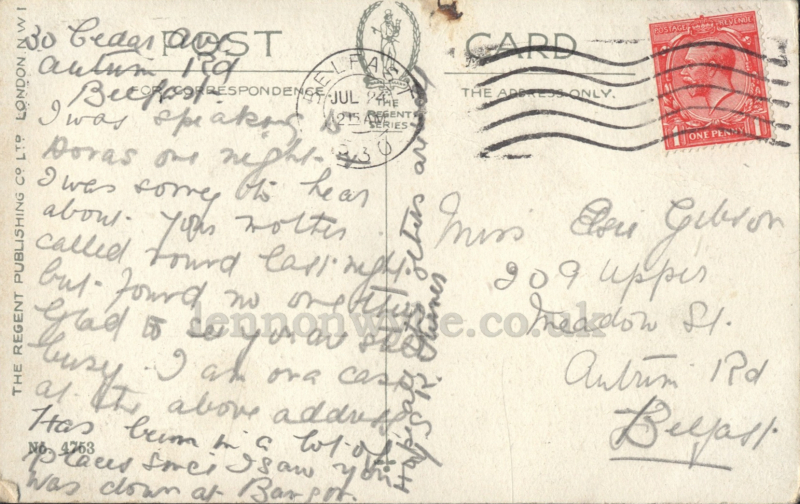 30 Cedar Ave.
Antrim Rd
Belfast
POST CARD
FOR CORRESPONDENCE
THE ADDRESS ONLY.
THE
REGENT
SERIES
BELFAST
JUL 24
2 15 AM
1930
POSTAGE REVENUE
1 ONE PENNY 1
I was speaking to
Doras one night.
I was sorry to hear
about your mother.
called round last night
but found no one there
Glad to see you are still
busy. I am on a case
at the above address
Has been in a lot of
places since I saw you
was down at Bangor.
Miss Elsie Gibson
209 Upper
Meadow St.
Antrim Rd
Belfast
THE REGENT PUBLISHING Co LTD LONDON N W 1
No. 4753
lennonwylie.co.uk